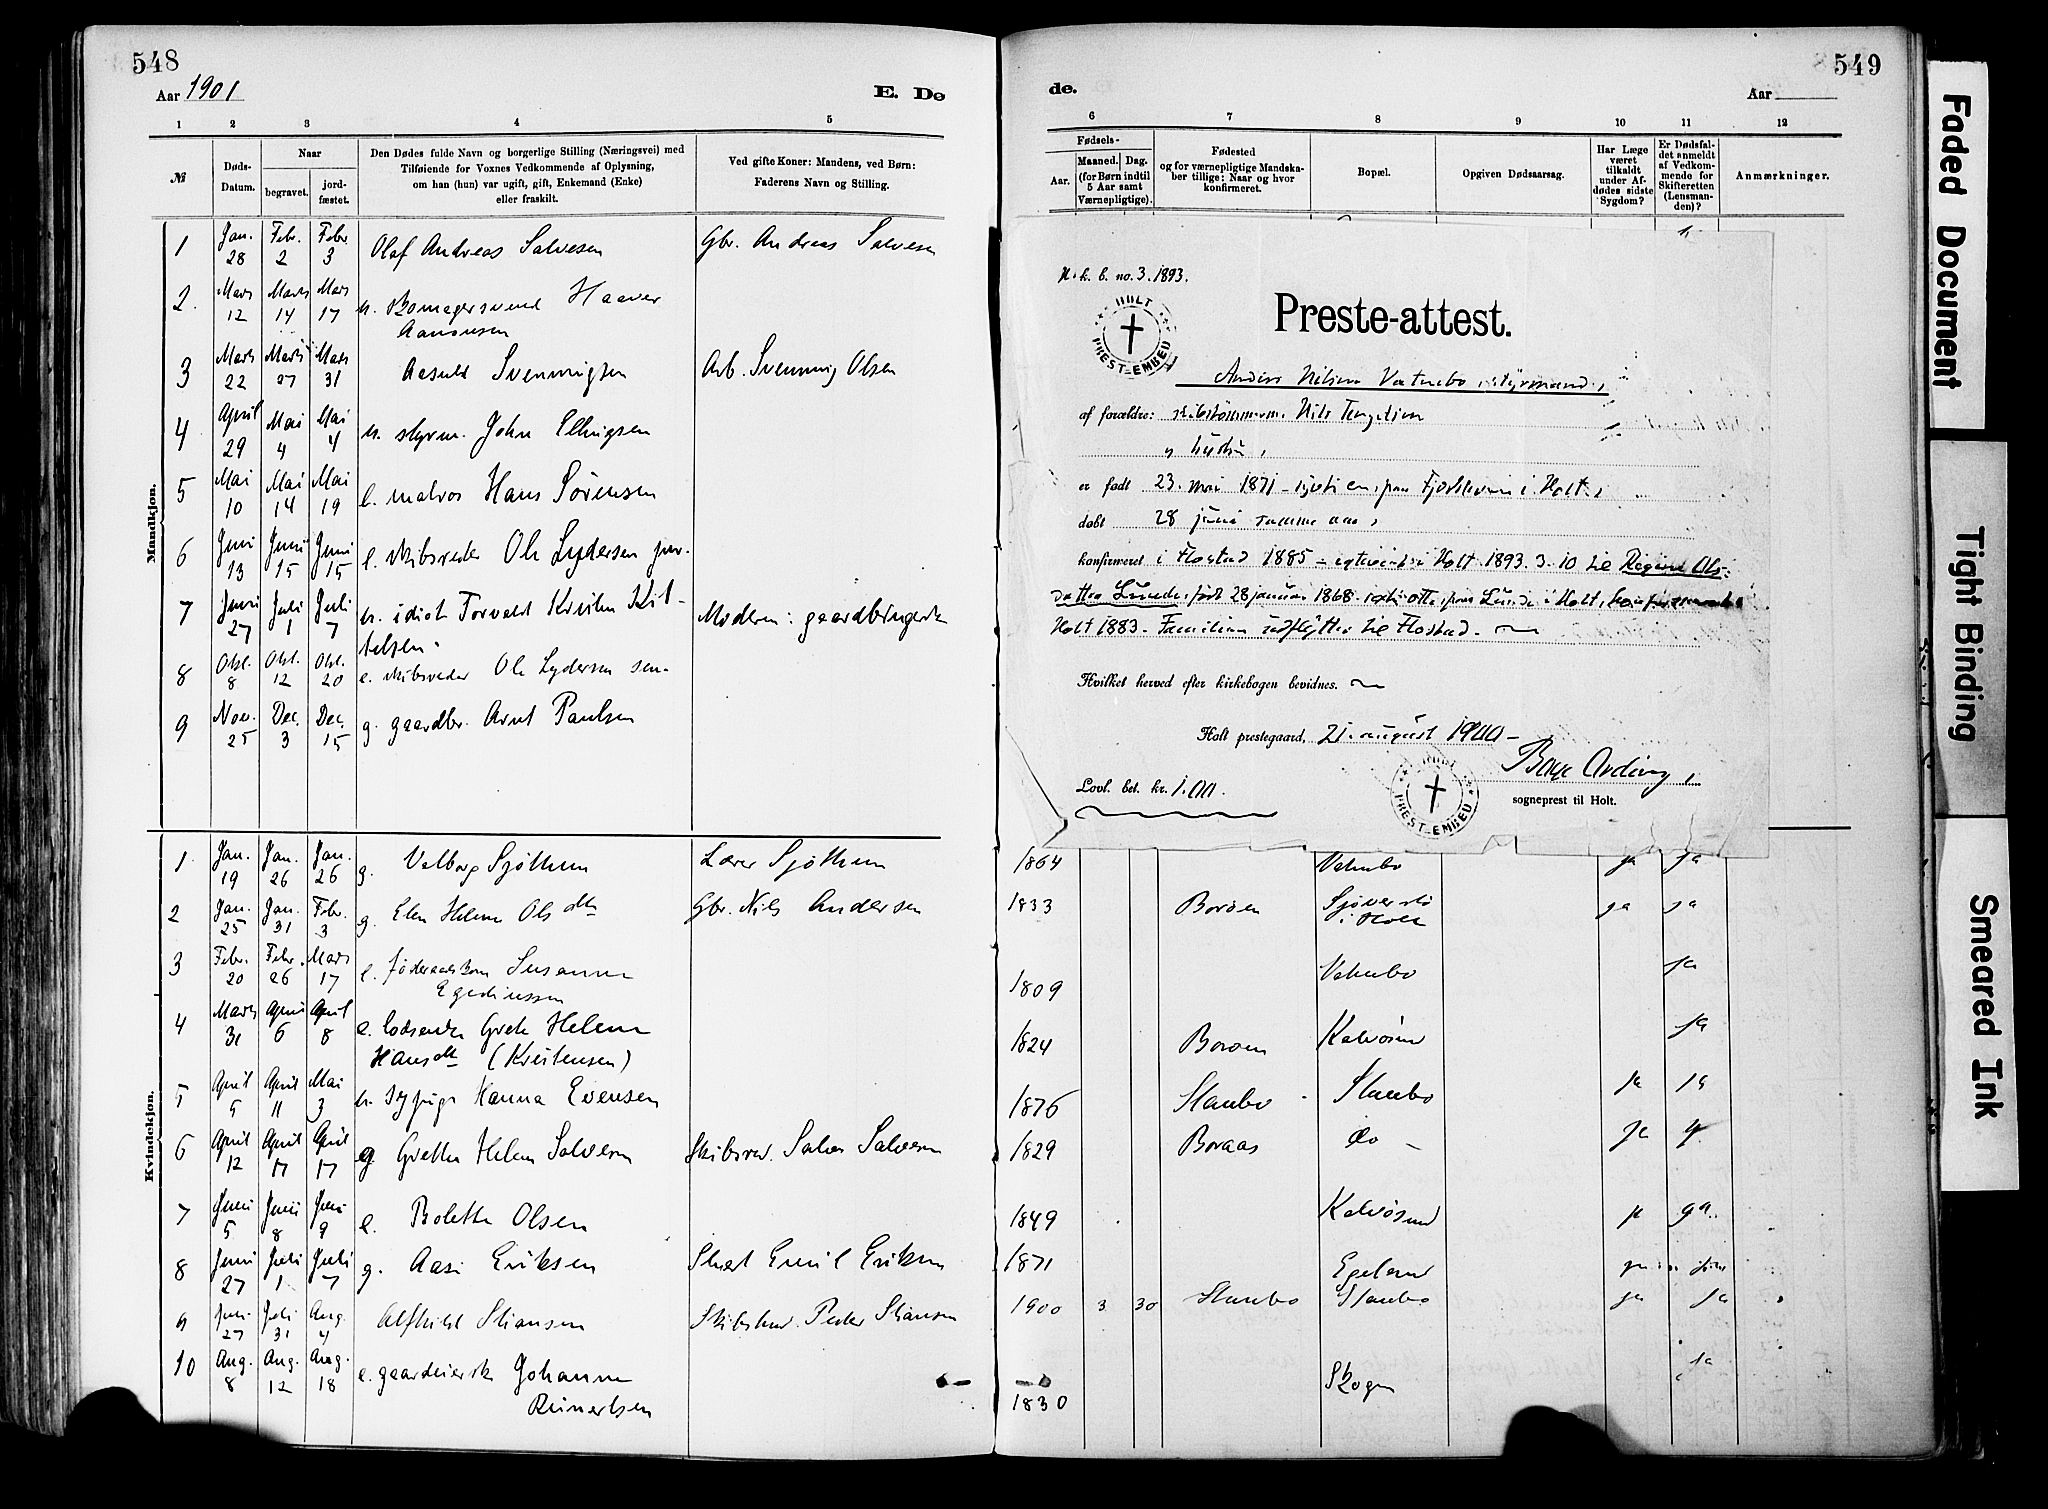 548
Aar 1901
E. De
1 2 3 4 5
№
Døds-Datum.
Naar
begravet.
jord-fæstet.
Den Dødes fulde Navn og borgerlige Stilling (Næringsvei) med
Tilføiende for Voxnes Vedkommende af Oplysning,
om han (hun) var ugift, gift, Enkemand (Enke)
eller fraskilt.
Ved gifte Koner: Mandens, ved Børn:
Faderens Navn og Stilling.
Mandkjøn.
1 Jan. 28 Febr. 2 Febr. 3 Olaf Andreas Salvesen Gbr. Andreas Salvesen
2. Mars 12 Mars 14 Mars 17 u. Haaver
Aanonsen
3 Mars 22 Mars 27 Mars 31 Aasuld Svenningsen Arb. Svenning Olsen
4 April 29 Mai 4 Mai 4 u. styrm. John Ellingsen
5 Mai 10 Mai 14 Mai 19 e. matros Hans Sørensen
6 Juni 13 Juni 15 Juni 15 e. skibsreder Ole Lydersen jun.
7 Juni 27 Juli 1 Juli 7 u. idiot Torvald Kristen Kit-
telsen. Moderen: gaardbrugerske
8 Okt. 8 Okt. 12 Okt. 20 e. skibsreder Ole Lydersen sen.
9 Nov. 25 Dec. 3 Dec. 15 g. gaardbr. Arnt Paulsen
Kvindekjøn.
1 Jan. 19 Jan. 26 Jan. 26 g. Valborg Sjøthun Lærer Sjøthun
2 Jan. 25 Jan. 31 Febr. 3 g. Elen Helene Olsdtr Gbr. Nils Andersen
3 Febr. 20 Febr. 26 Mars 17 e. føderaadskone Susanne
Egediussen
4 Mars 31 April 6 April 8 e. lodsenke Grete Helene
Hansdtr (Kristensen)
5 April 5 April 11 Mai 3 u. sypige Hanna Evensen
6 April 12 April 17 April 17 g Grethe Helene Salvesen Skibsred. Salve Salvesen
7 Juni 5 Juni 8 Juni 9 e. Bolette Olsen
8 Juni 27 Juli 1 Juli 7 g. Aasi Eriksen Emil Eriksen
9 Juli 27 Juli 31 Aug. 4 Alfhild Stiansen Peder Stiansen
10 Aug. 8 Aug. 12 Aug. 18 e. gaardeierske Johanne
Reinertsen
549
de.
Aar
6 7 8 9 10 11 12
Fødsels-
Aar.
Maaned. Dag.
(for Børn indtil
5 Aar samt
Værnepligtige).
Fødested
og for værnepligtige Mandska-
ber tillige: Naar og hvor
konfirmeret.
Bopæl.
Opgiven Dødsaarsag.
Har Læge
været
tilkaldt
under Af-
dødes sidste
Sygdom?
Er Dødsfal-
det anmeldt
af Vedkom-
mende for
Skifteretten
(Lensman-
den)?
Anmærkninger.
H. k. b. no. 3. 1893.
HOLT PREST-EMBED
Preste-attest.
Anders Nilsen Vatnebo, styrmand,
af forældre: skibstømmerm. Nils Tengelsen
og hustru,
er født 23. mai 1871 - i Holt,
døbt 28 juni samme aar,
konfirmeret i Flostad 1885 - egteviet i Holt 1893. 3. 10 til Regine Ols-
datter Lunde, født 28 januar 1868 paa Lunde i Holt,
Holt 1883. Familien udflyttet til Flostad.
Hvilket herved efter kirkebogen bevidnes.
Holt prestegaard, 21. august 1900 -
sogneprest til Holt.
Lovl. bet. kr. 1.00.
HOLT PREST-EMBED
1864 Vatnebo ja ja
1833 Borøen Sjøverstø
i Holt ja ja
1809 Vatnebo ja
1824 Borøen Kalvøsund ja
1876 Staubo Staubo ja ja
1829 Boraas do - ja
1849 Kalvøsund ja ja
1871 Egeland
1900 3 30 Staubo Staubo ja ja
1830 Skogen ja
Faded Document
Tight Binding
Smeared Ink